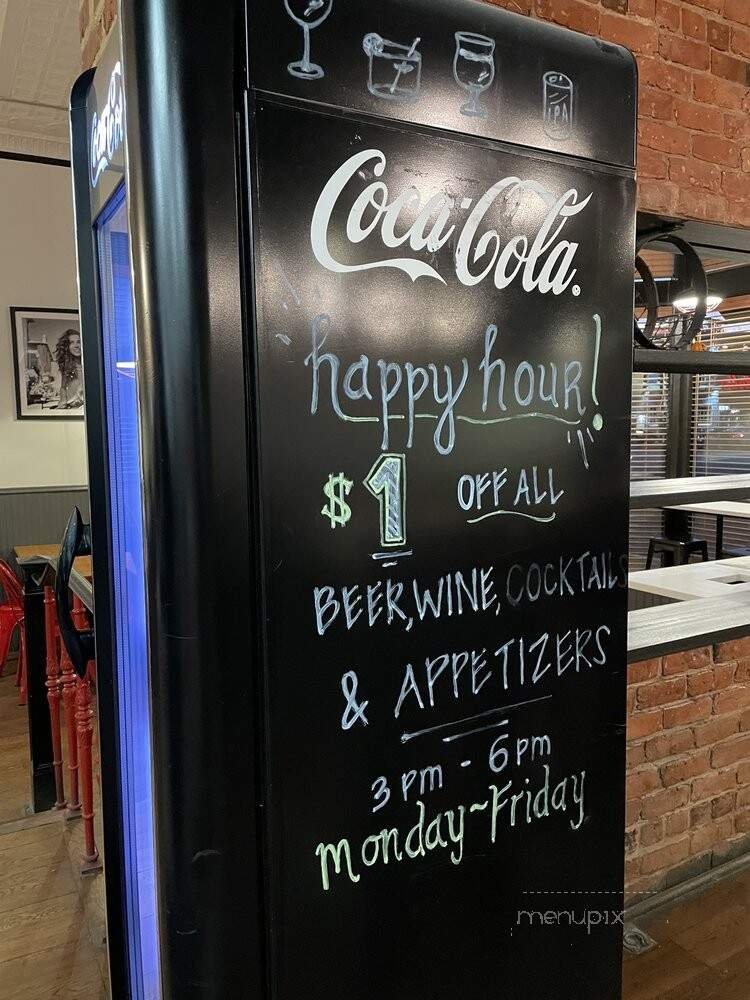 IPA
Coca-Cola
Coca-Cola
happy hour!
$1 OFF ALL
BEER, WINE, COCKTAILS
& APPETIZERS
3pm - 6pm
Monday~Friday
menupix